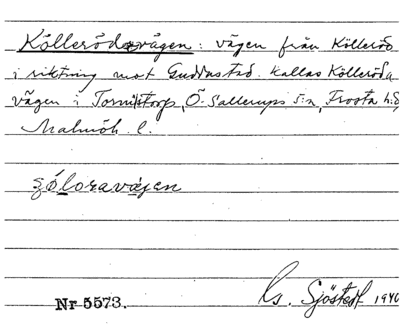 Köllerödsvägen: vägen från Kölleröd
i riktning mot Gudvastad kallas Kölleröda
vägen i Torpstorp, Ö. Sallerups s:n, Frosta h:d,
Malmöh. l.
Nr 5573.
G. Sjöstedt 1946